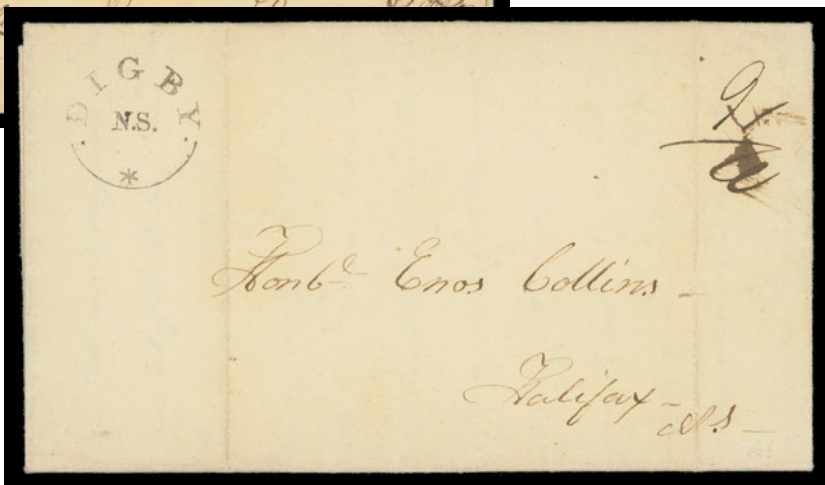 DIGBY
N.S.
*
9
Honble Enos Collins -
Halifax -
N.S -